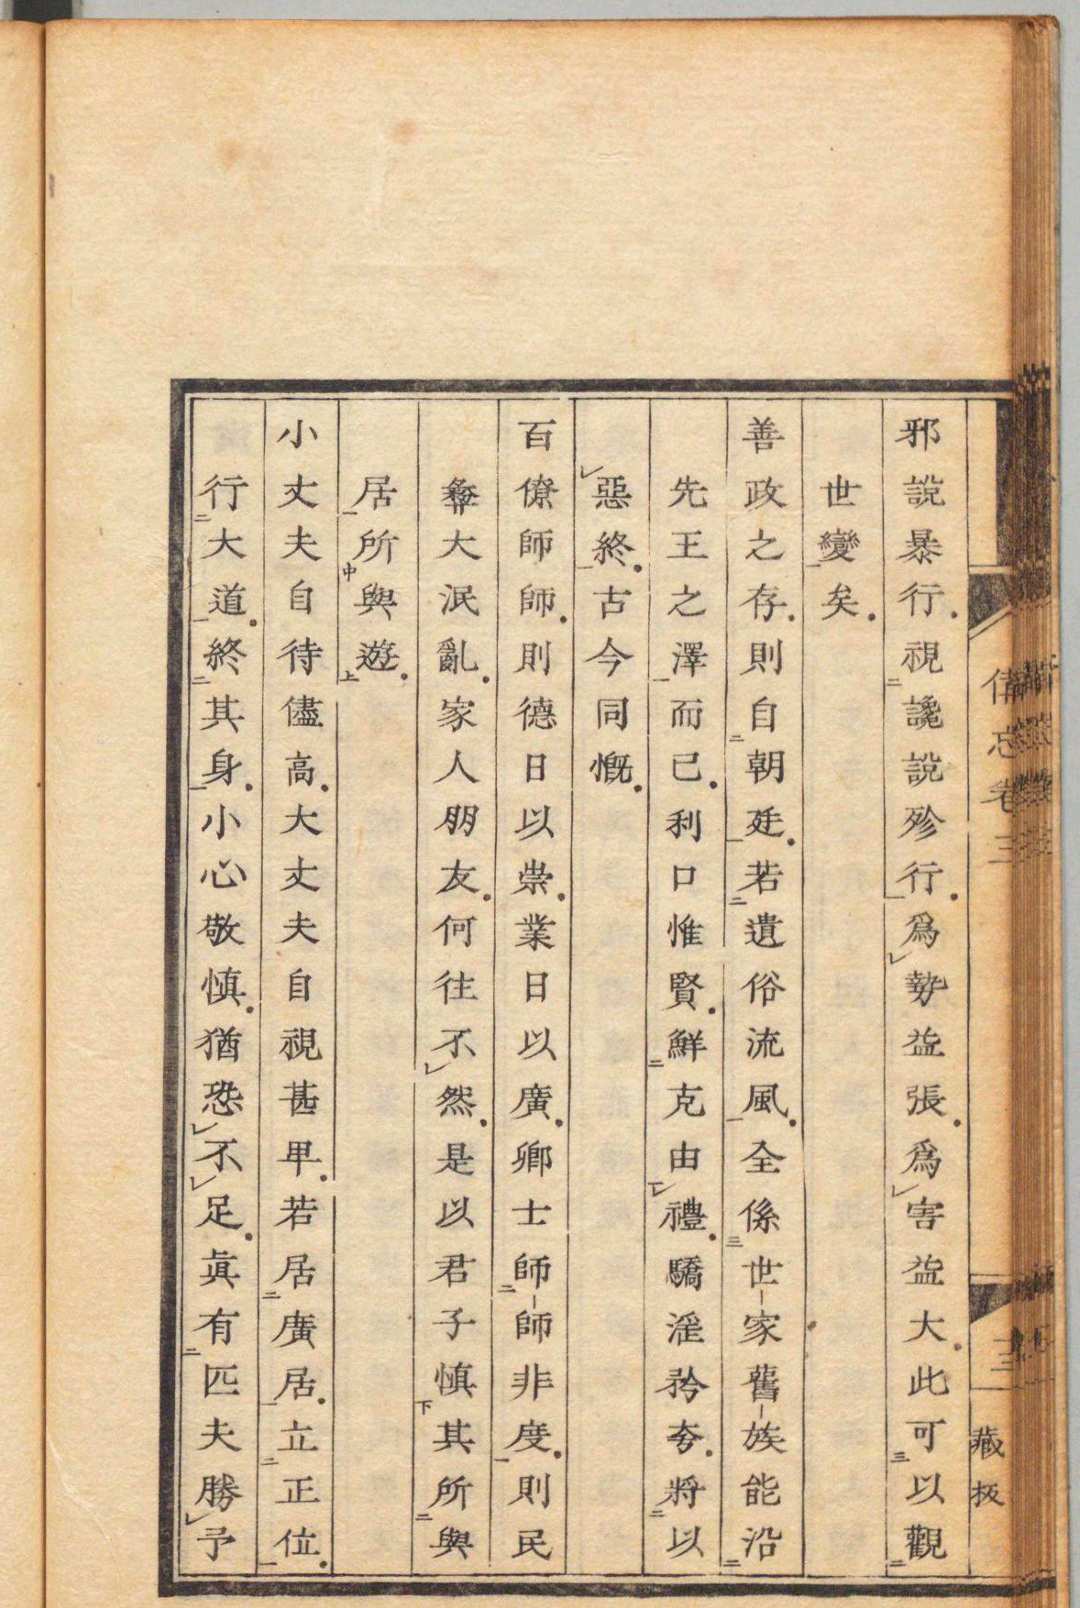 邪說暴行視讒說殄行爲勢益張爲害益大此可以觀
世變矣
善政之存則自朝廷若遺俗流風全係世家舊族能沿
先王之澤而已利口惟賢鮮克由禮驕淫矜夸將以
惡終古今同慨
百僚師師則德日以崇業日以廣卿士師師非度則民
彝大泯亂家人朋友何往不然是以君子慎其所與
居所與遊
小丈夫自待儘高大丈夫自視甚卑若居廣居立正位
行大道終其身小心敬慎猶恐不足眞有匹夫勝予
備忘卷三
藏板